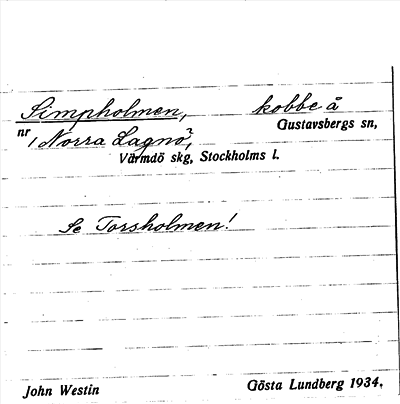 Simpholmen, kobbe å
Gustavsbergs sn,
nr 1 Norra Lagnö?,
Värmdö skg, Stockholms l.
Se Torsholmen!
John Westin Gösta Lundberg 1934.